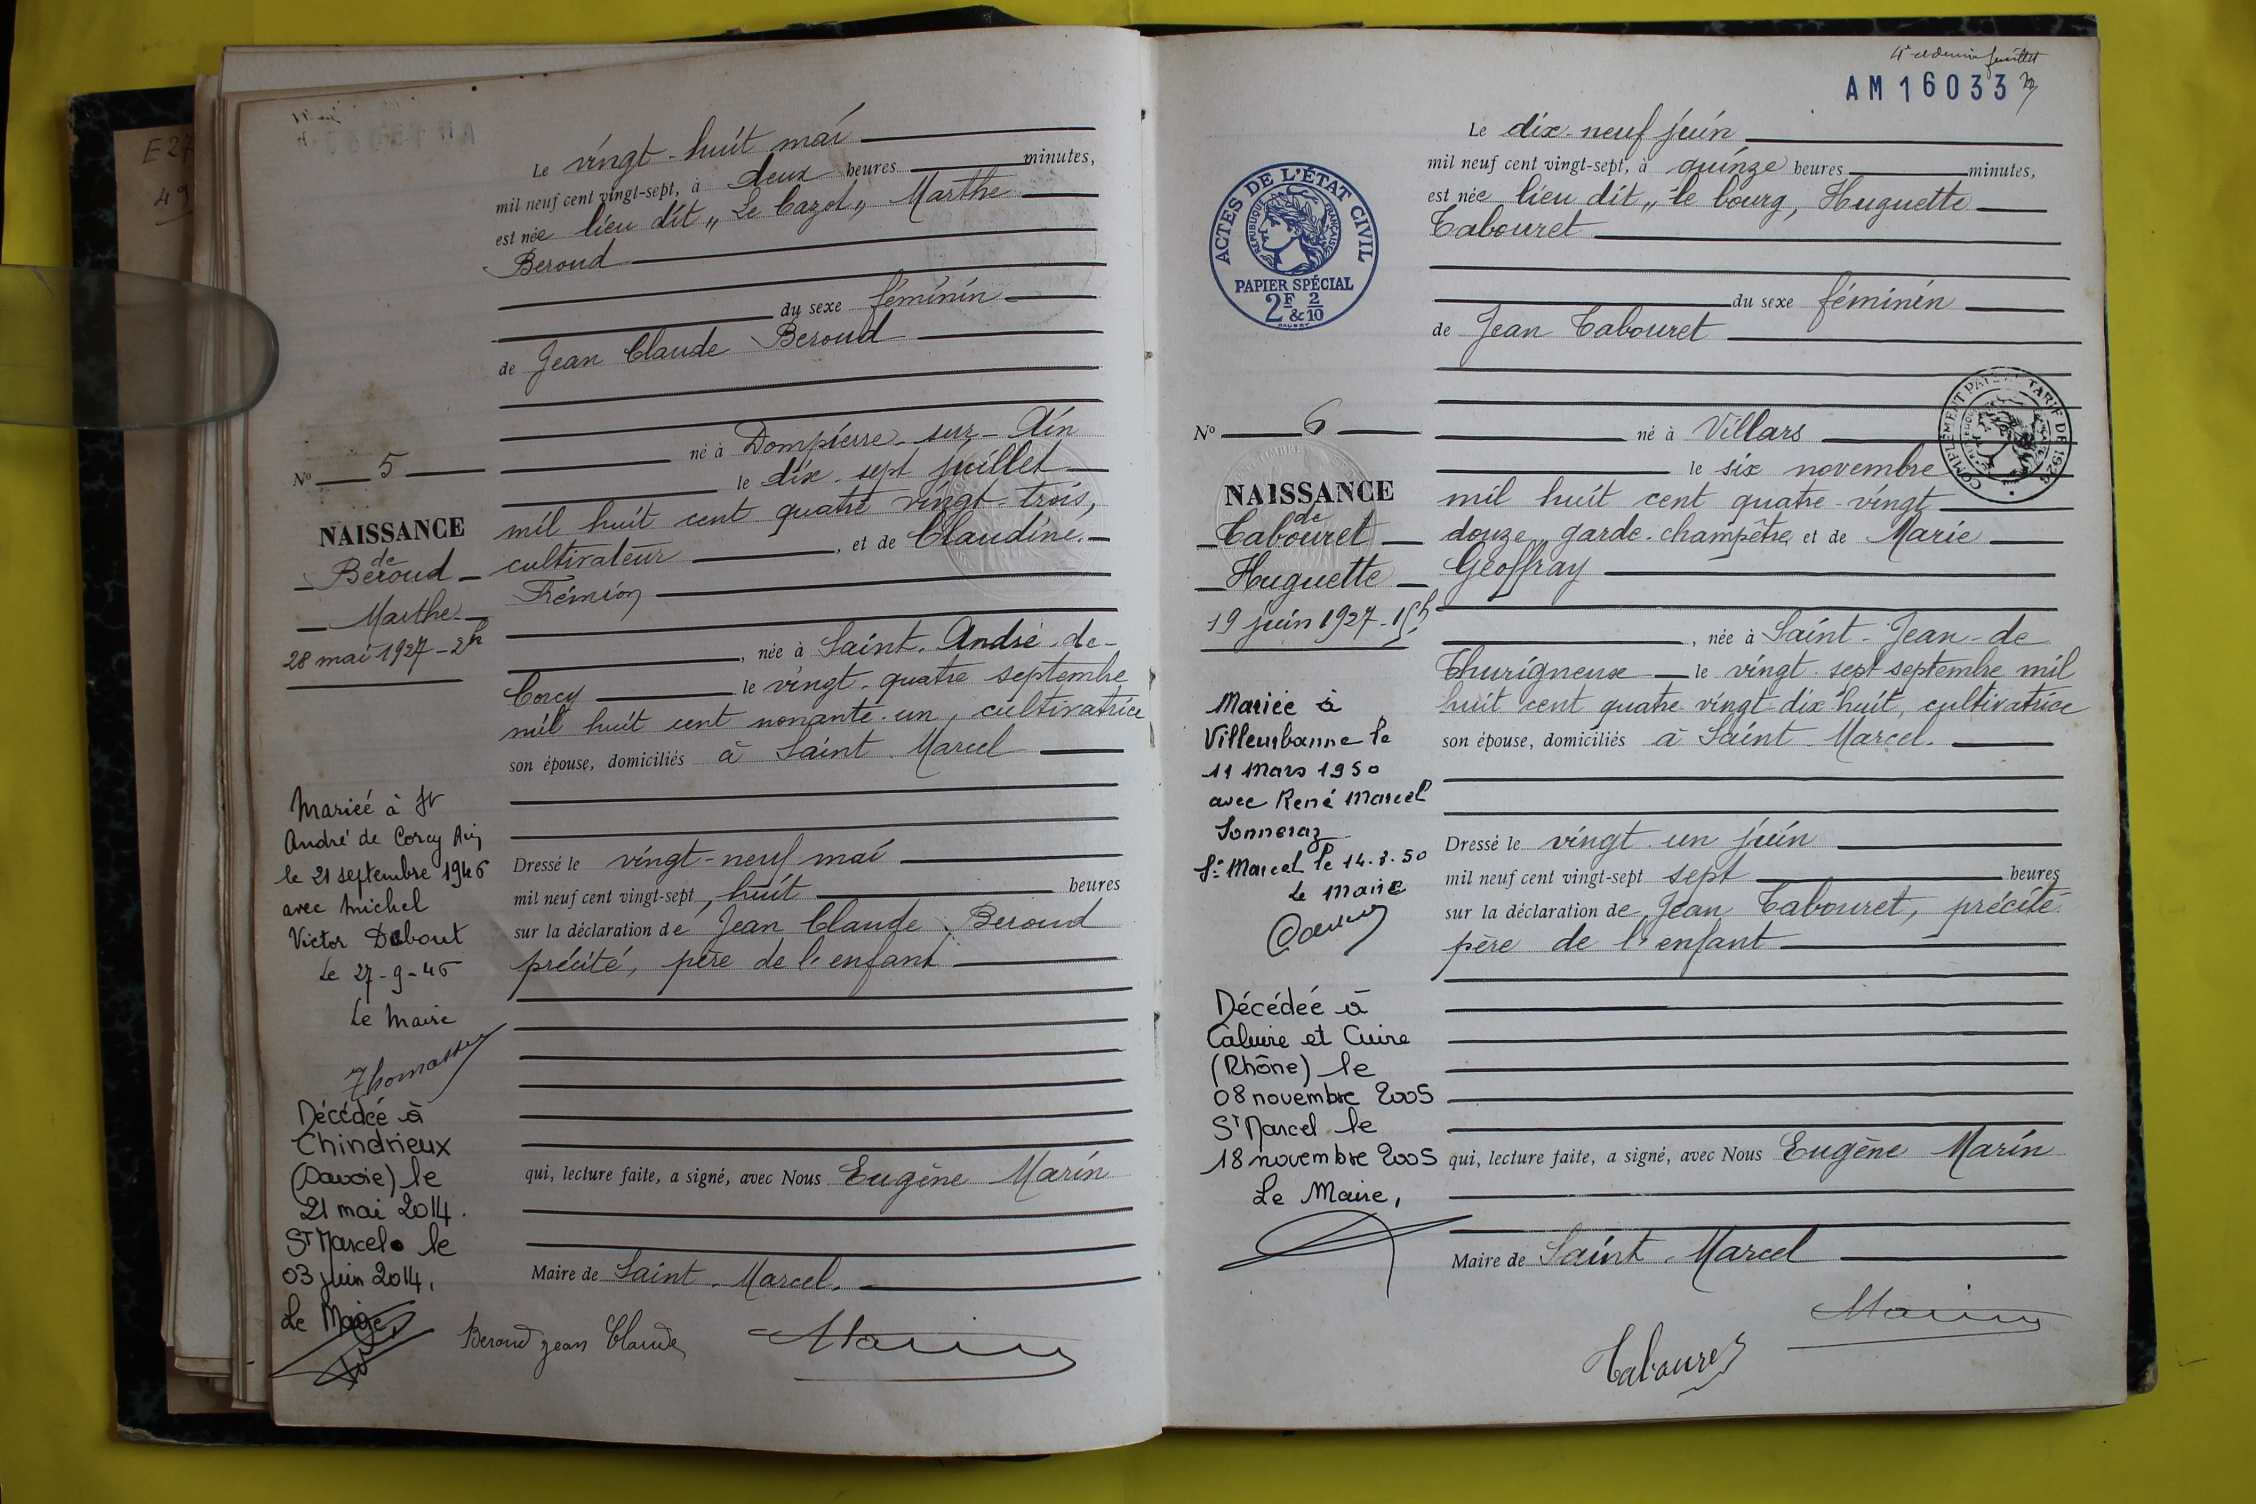 E 27
49
Le vingt-huit mai
mil neuf cent vingt-sept, à deux heures minutes,
est née lieu dit „Le Cazot„ Marthe
Beroud
du sexe féminin
de Jean Claude Beroud
né à Dompierre-sur-Ain
le dix-sept juillet
mil huit cent quatre vingt-trois,
cultivateur, et de Claudine
Frémion
, née à Saint-André-de-
Corcy le vingt-quatre septembre
mil huit cent nonante-un, cultivatrice
son épouse, domiciliés à Saint Marcel
Dressé le vingt-neuf mai
mil neuf cent vingt-sept, huit heures
sur la déclaration de Jean Claude Beroud
précité, père de l'enfant
qui, lecture faite, a signé, avec Nous Eugène Marin
Maire de Saint-Marcel.
Beroud jean Claude
Marin
N° 5
NAISSANCE
de
Beroud
Marthe
28 mai 1927 - 2h
Mariée à St
André de Corcy Ain
le 21 septembre 1946
avec Michel
Victor Debout
Le 27-9-46
Le Maire
Thomasson
Décédée à
Chindrieux
(Savoie) le
21 mai 2014.
St Marcel le
03 juin 2014,
Le Maire,
4e et dernier feuillet
AM 16033
Le dix-neuf juin
mil neuf cent vingt-sept, à quinze heures minutes,
est née lieu dit „le bourg, Huguette
Tabouret
du sexe féminin
de Jean Tabouret
né à Villars
le six novembre
mil huit cent quatre-vingt
douze, garde-champêtre, et de Marie
Geoffray
, née à Saint-Jean-de
Thurigneux le vingt-sept septembre mil
huit cent quatre-vingt-dix-huit, cultivatrice
son épouse, domiciliés à Saint-Marcel.
Dressé le vingt-un juin
mil neuf cent vingt-sept sept heures
sur la déclaration de Jean Tabouret, précité
père de l'enfant
qui, lecture faite, a signé, avec Nous Eugène Marin
Maire de Saint-Marcel
Marin
Tabouret
ACTES DE L'ÉTAT CIVIL
RÉPUBLIQUE FRANÇAISE
PAPIER SPÉCIAL
2F & 2/10
COMPLÉMENT TARIF DE
N° 6
NAISSANCE
de
Tabouret
Huguette
19 juin 1927 - 15h
Mariée à
Villeurbanne le
11 Mars 1950
avec René Marcel
Sonneraz
St Marcel le 14.3.50
Le Maire
Décédée à
Caluire et Cuire
(Rhône) le
08 novembre 2005
St Marcel le
18 novembre 2005
Le Maire,